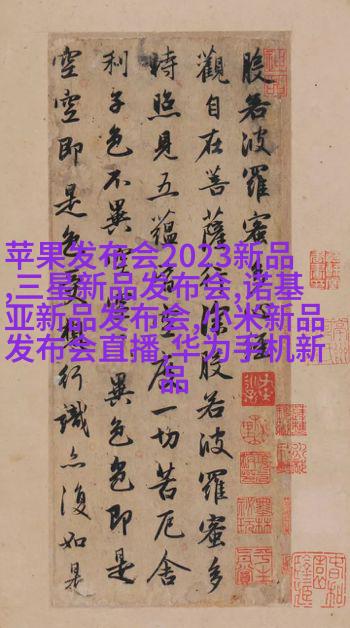 般若波羅蜜多心經
觀自在菩薩行深般若波羅蜜多
時照見五蘊皆空度一切苦厄舍
利子色不異空空不異色色即是
空空即是色受想行識亦復如是
苹果发布会2023新品
,三星新品发布会,诺基
亚新品发布会,小米新品
发布会直播,华为手机新
品